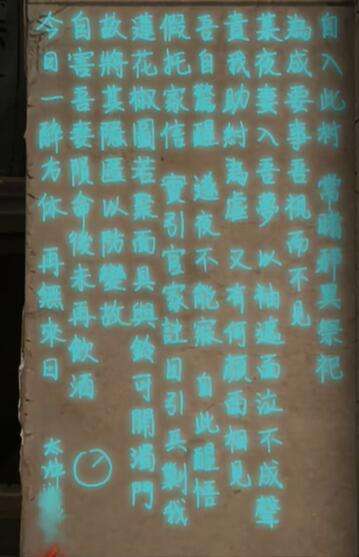 自入此村 常睹邪異祭祀
為成要事吾視而不見
某夜妻入吾夢以袖遮面泣不成聲
責我助紂為虐又有何顏面相見
吾自驚醒 遂夜不能寐 自此醒悟
假托家信 實引官家註目引兵剿俄
蓮花椒圖若聚而具與鈥可開濁門
故將其隱匿以防變故
自害吾妻隕命後未再飲酒
今日一醉方休 再無來日